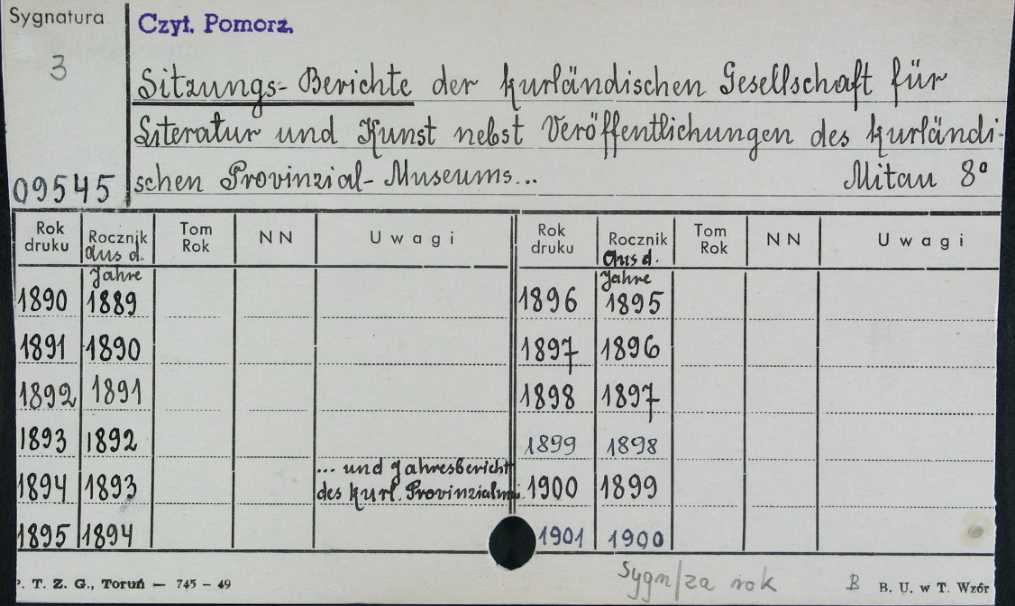 Sygnatura
Czyt. Pomorz.
3
Sitzungs-Berichte der kurländischen Gesellschaft für
Literatur und Kunst nebst Veröffentlichungen des kurländi-
09545 schen Provinzial-Museums... Mitau 8°
Rok druku Rocznik Tom Rok NN Uwagi Rok druku Rocznik Tom Rok NN Uwagi
aus d. Jahre aus d. Jahre
1890 1889 1896 1895
1891 1890 1897 1896
1892 1891 1898 1897
1893 1892 1899 1898
... und Jahresbericht
1894 1893 des kurl. Provinzialmu. 1900 1899
1895 1894 1901 1900
Sygn/za rok B
P. T. Z. G., Toruń — 745 – 49 B. U. w T. Wzór